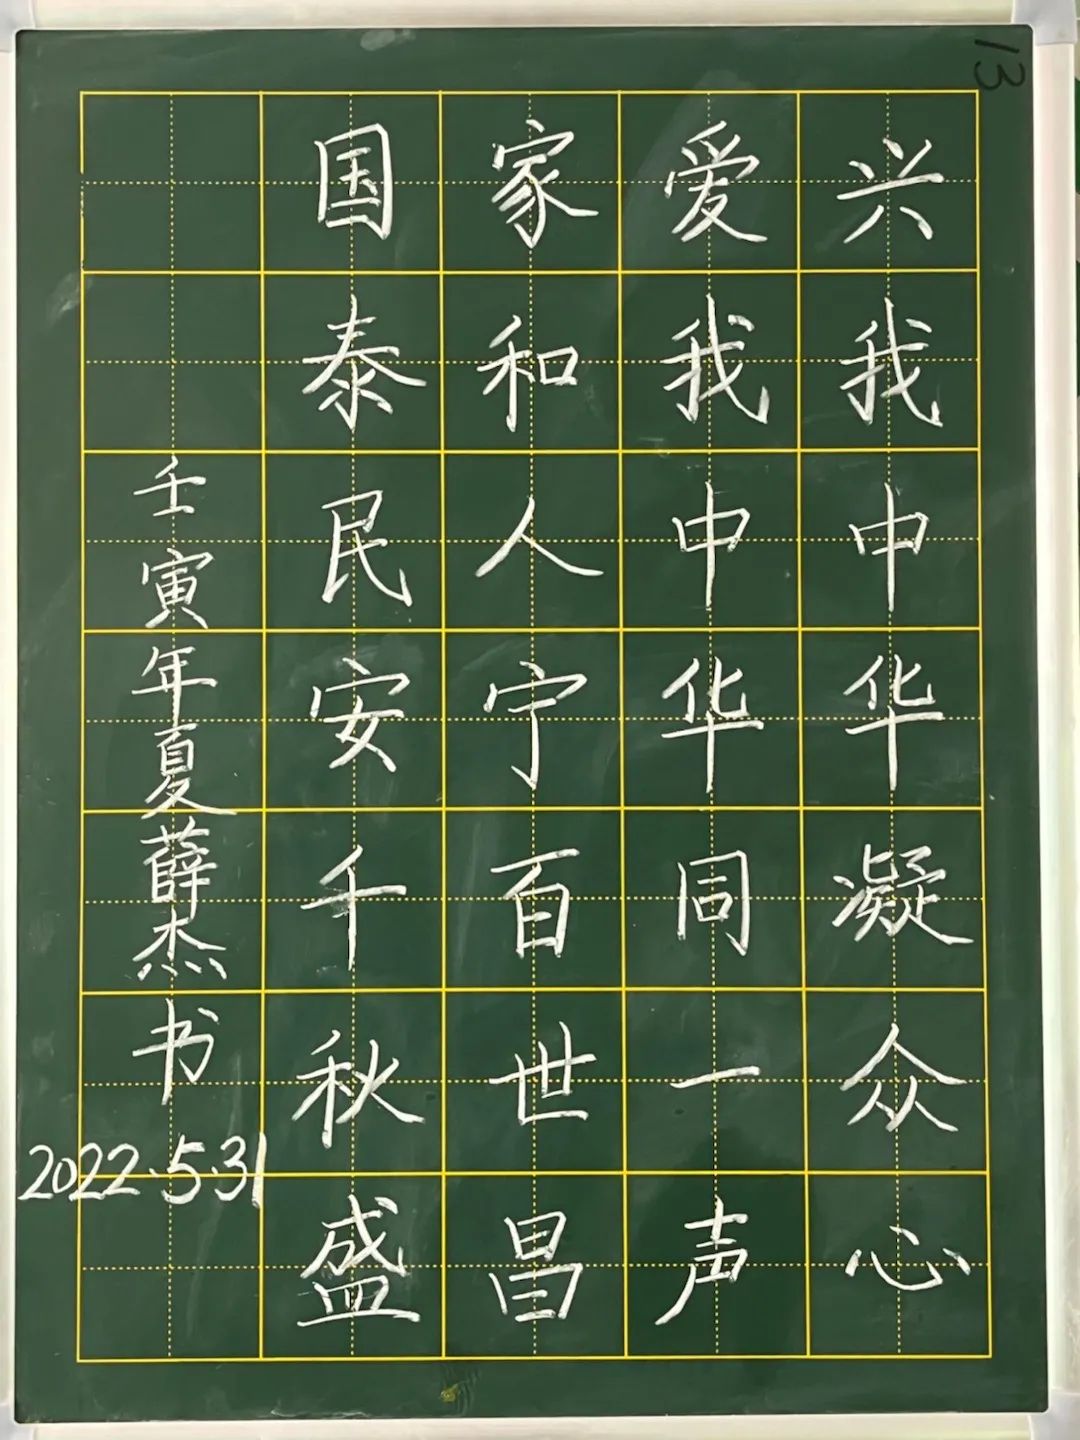 13
兴我中华凝众心
爱我中华同一声
家和人宁百世昌
国泰民安千秋盛
壬寅年夏薛杰书
2022.5.31